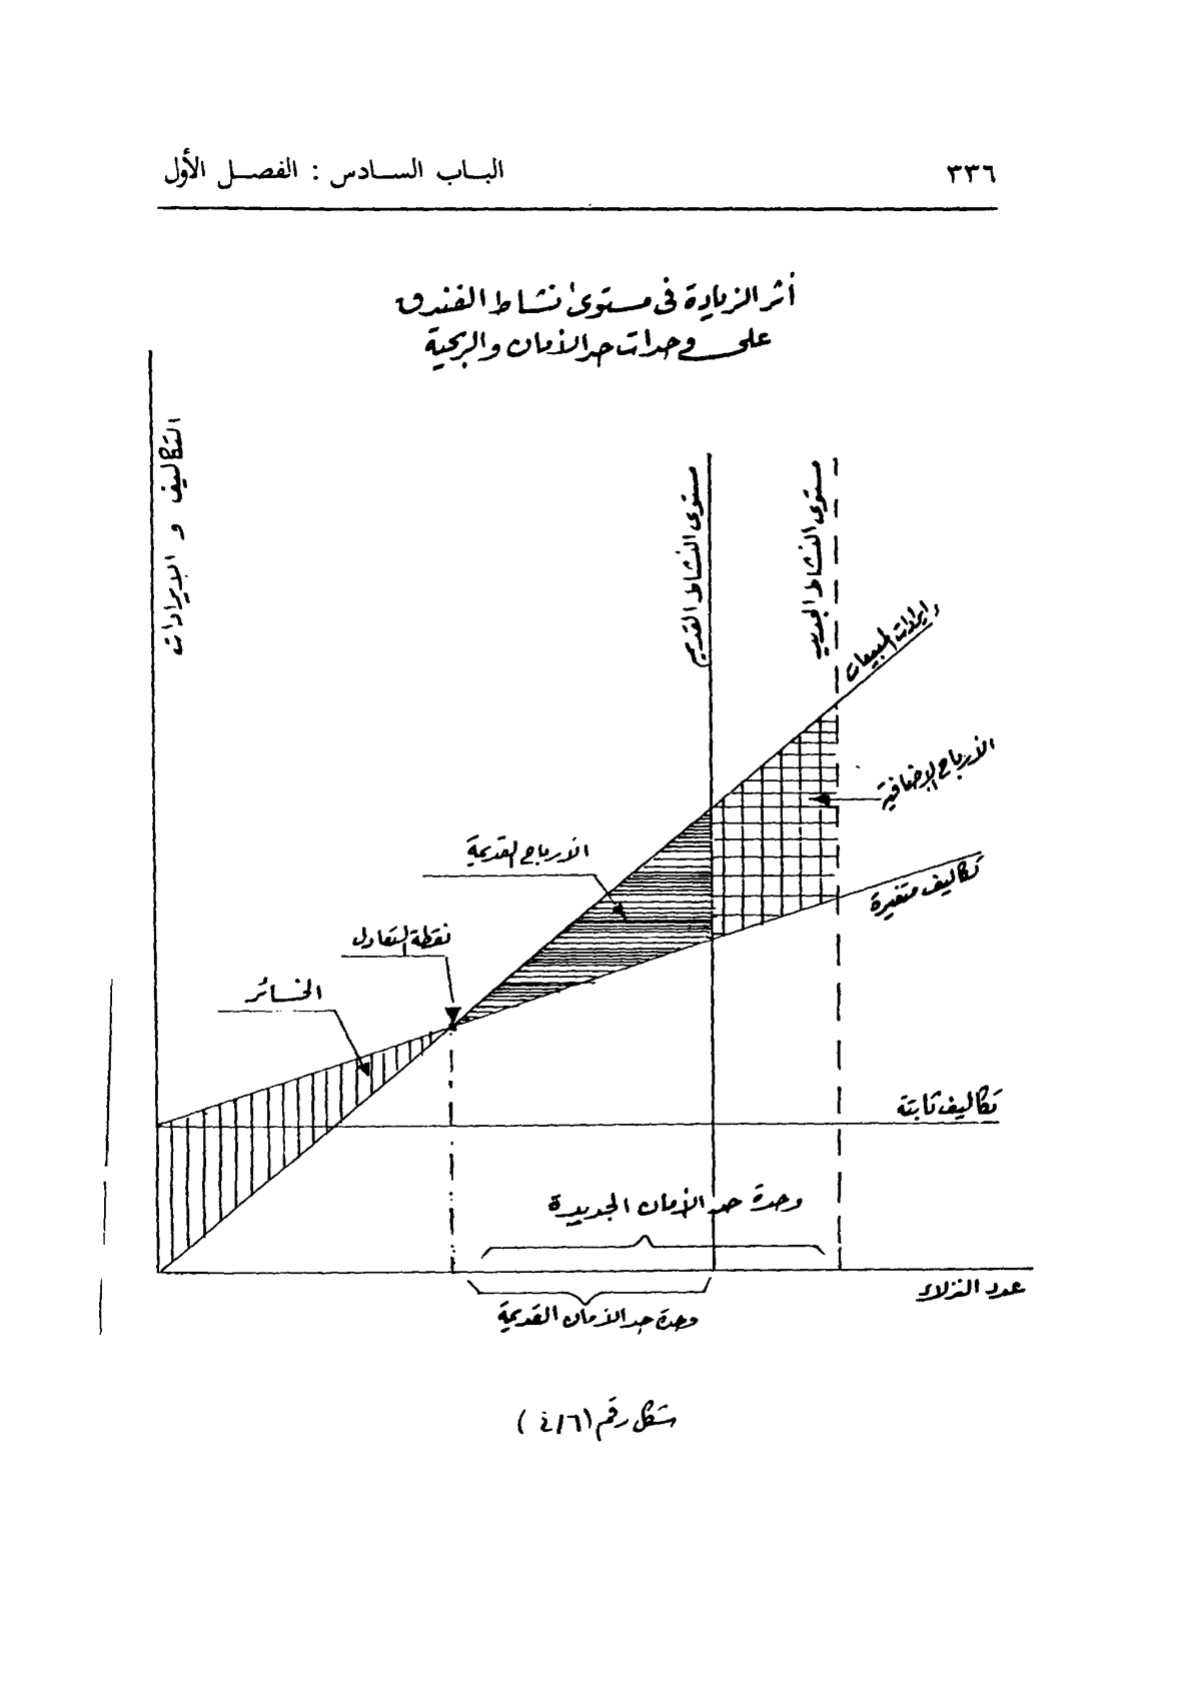 ٣٣٦
الباب السادس : الفصل الأول
أثر الزيادة فى مستوى نشاط الفندق
على وحدات حد الأمان والربحية
التكاليف و الإيرادات
مستوى النشاط القديم
مستوى النشاط الجديد
إيرادات المبيعات
الأرباح الإضافية
الأرباح القديمة
تكاليف متغيرة
نقطة التعادل
الخسائر
تكاليف ثابتة
وحدة حد الأمان الجديدة
عدد النزلاء
وحدة حد الأمان القديمة
شكل رقم (٤/٦)